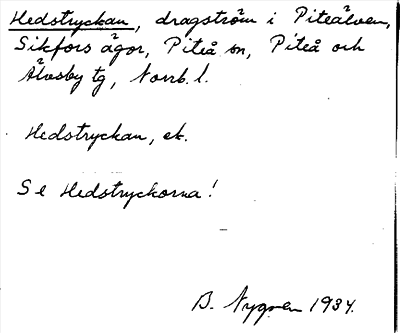 Hedstryckan, dragström i Piteälven,
Sikfors ägor, Piteå sn, Piteå och
Älvsby tg, Norrb. l.
Hedstryckan, ek.
Se Hedstryckorna!
B. Nygren 1934.